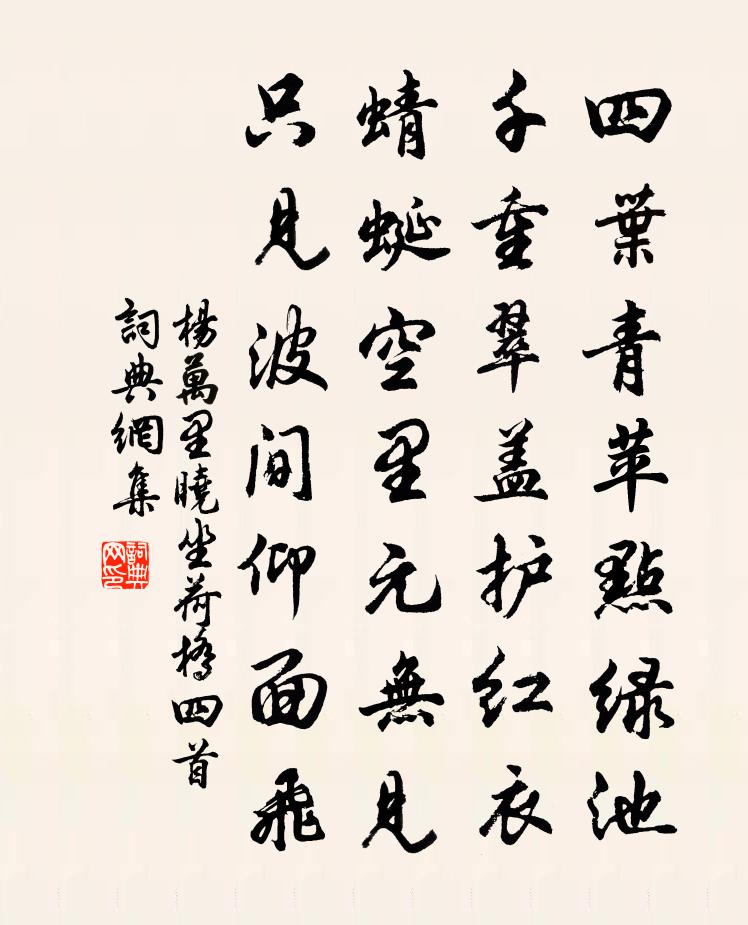 四葉青苹點绿池
千重翠盖护红衣
蜻蜓空里元無見
只見波间仰面飛
楊萬里曉坐荷橋四首
詞典網集
詞典网印